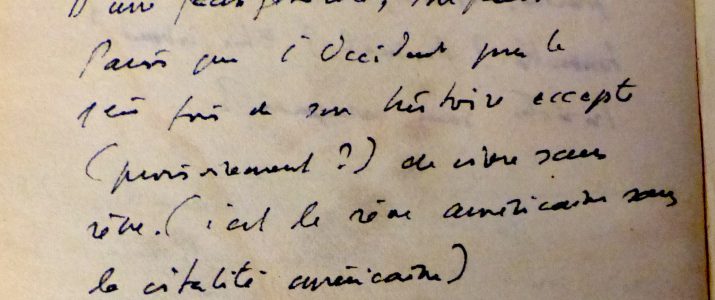 D'une façon générale,
Paris que l'Occident pour la
1ère fois de son histoire accepte
(provisoirement ?) de vivre sans
rêve. (c'est le rêve américain sans
la vitalité américaine)